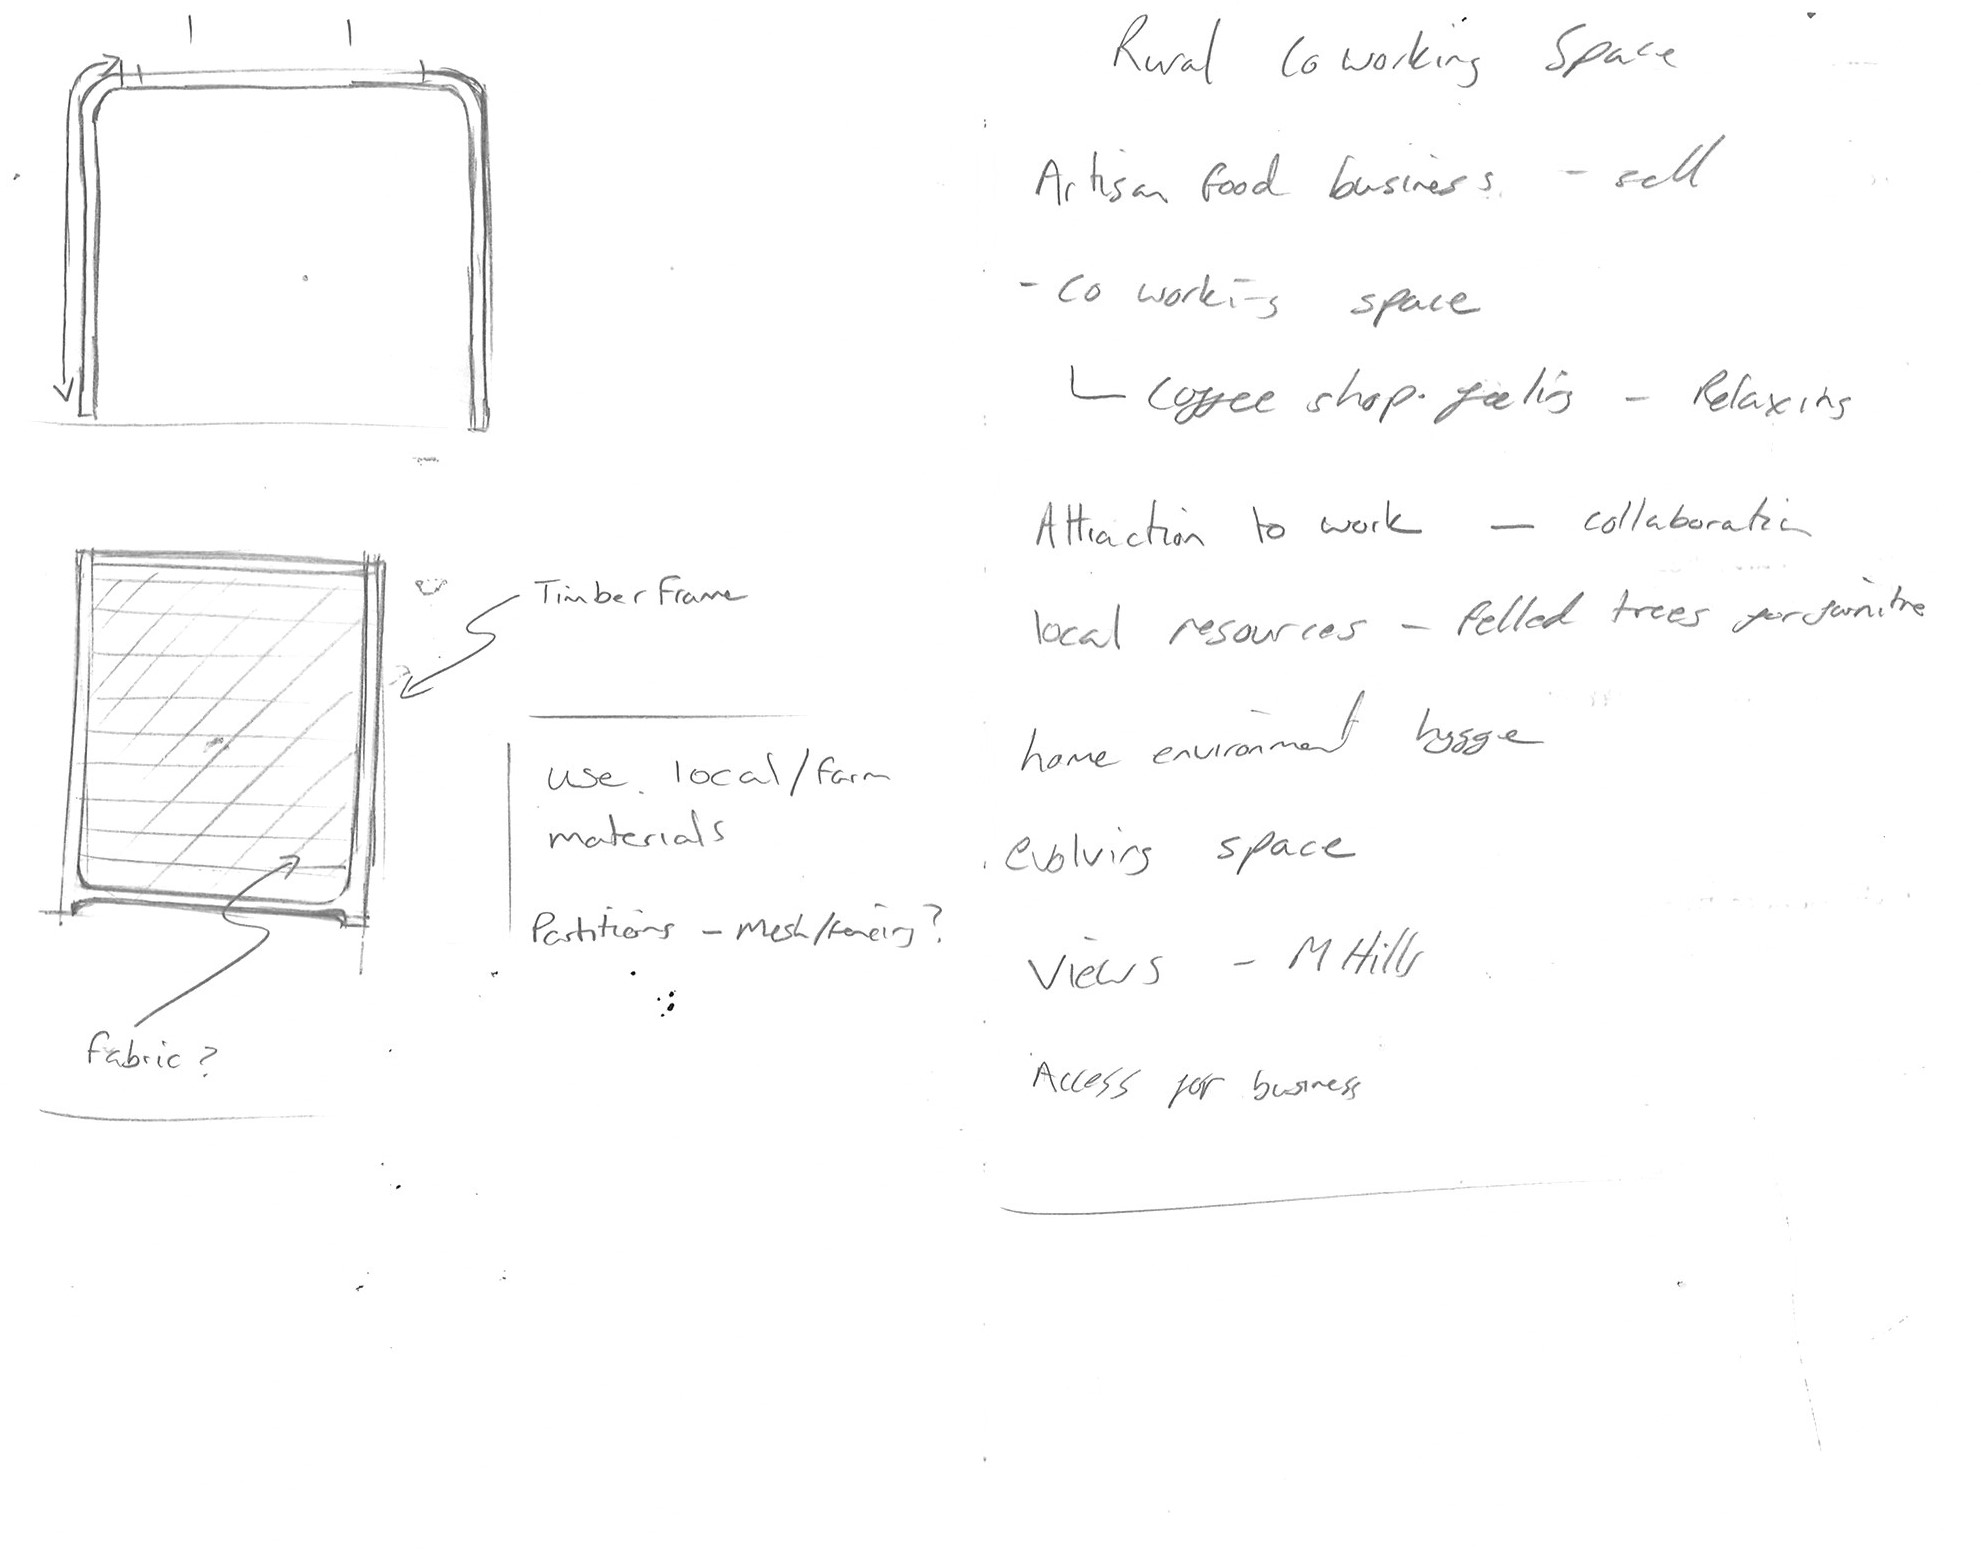 Timber Frame
use local/farm
materials
Partitions - Mesh/fencing?
fabric?
Rural Co working Space
Artisan food business - sell
- Co working space
Coffee shop feeling - Relaxing
Attraction to work - collaboration
local resources - felled trees for furnitre
home environment hygge
evolving space
Views - M Hills
Access for business